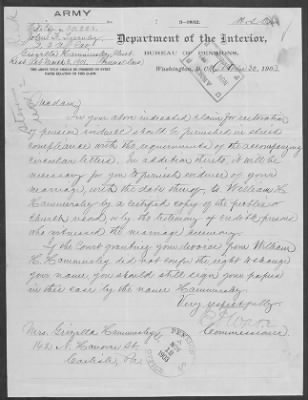 ARMY
3-862.
Department of the Interior,
BUREAU OF PENSIONS,
Washington, D. C., 22, 1903
Madam:
In your above indicated claim for restoration
of pension evidence should be furnished in strict
compliance with the requirements of the accompanying
circular letters. In addition thereto, it will be
necessary for you to furnish evidence of your
marriage, with the date thereof, to William H.
Hammersley by a certified copy of the public or
church record, or by the testimony of credible persons
who witnessed the marriage ceremony.
If the Court granting you divorce from William
H. Hammersley did not confer the right to change
your name you should still sign your papers
in this case by the name Hammersley.
Very respectfully,
Commissioner.
Mrs. Grizella Hammersley
142 N. Hanover St
Carlisle, Pa